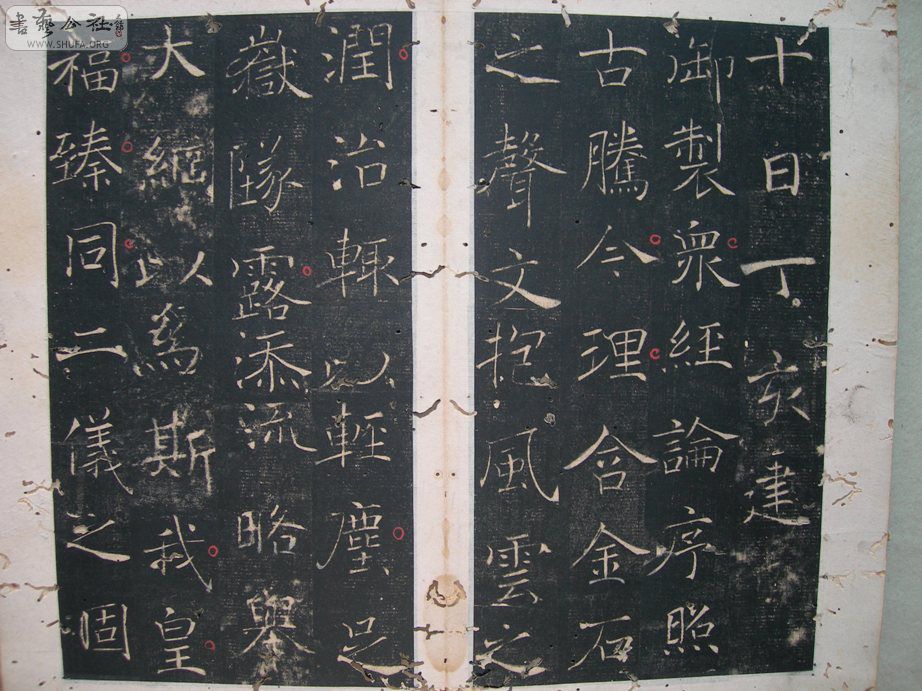 十日丁亥建
御製眾經論序照
古騰今理含金石
之聲文抱風雲之
潤治輒以輕塵足
嶽墜露添流略舉
大綱以為斯記
皇
福臻同二儀之固
書藝公社
WWW.SHUFA.ORG